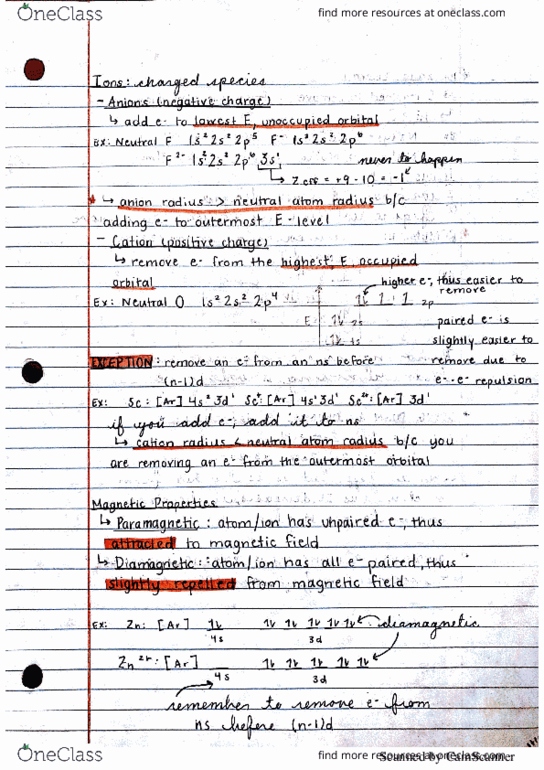 OneClass
find more resources at oneclass.com
Ions: charged species
- Anions (negative charge)
↳ add e⁻ to lowest E, unoccupied orbital
Ex: Neutral F 1s² 2s² 2p⁵ F⁻ 1s² 2s² 2p⁶
F²⁻ 1s² 2s² 2p⁶ 3s¹ never to happen
↳ Zeff = +9 - 10 = -1
* ↳ anion radius > neutral atom radius b/c
adding e⁻ to outermost E-level
- Cation (positive charge)
↳ remove e⁻ from the highest E, occupied
orbital
higher e⁻, thus easier to
remove
Ex: Neutral O 1s² 2s² 2p⁴ E 2p
2s
1s
paired e⁻ is
slightly easier to
remove due to
e⁻-e⁻ repulsion
EXCEPTION: remove an e⁻ from an ns before
(n-1)d
Ex: Sc: [Ar] 4s² 3d¹ Sc⁺: [Ar] 4s¹ 3d¹ Sc²⁺: [Ar] 3d¹
if you add e⁻, add it to ns
↳ cation radius < neutral atom radius b/c you
are removing an e⁻ from the outermost orbital
Magnetic Properties
↳ Paramagnetic: atom/ion has unpaired e⁻, thus
attracted to magnetic field
↳ Diamagnetic: atom/ion has all e⁻ paired, thus
slightly repelled from magnetic field
Ex: Zn: [Ar] ⥮ ⥮ ⥮ ⥮ ⥮ ⥮ diamagnetic
4s 3d
Zn²⁺: [Ar] __ ⥮ ⥮ ⥮ ⥮ ⥮
4s 3d
remember to remove e⁻ from
ns before (n-1)d
OneClass
find more resources at oneclass.com
Scanned by CamScanner